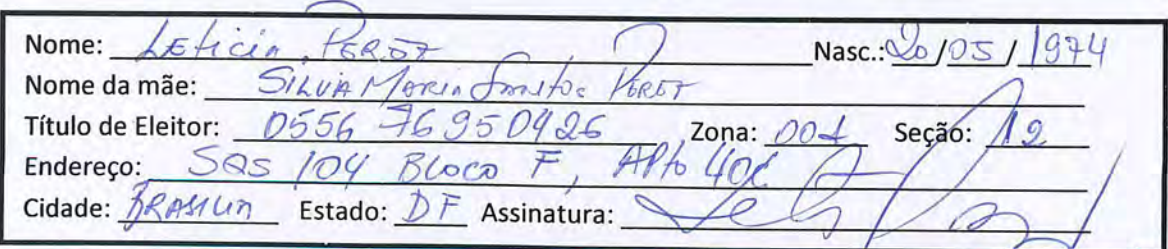 Nome: Leticia Peret Nasc.: 20/05/1974
Nome da mãe: Silvia Maria Santos Peret
Título de Eleitor: 0556 76950426 Zona: 001 Seção: 12
Endereço: SQS 104 Bloco F, Apto 40
Cidade: Brasilia Estado: DF Assinatura: